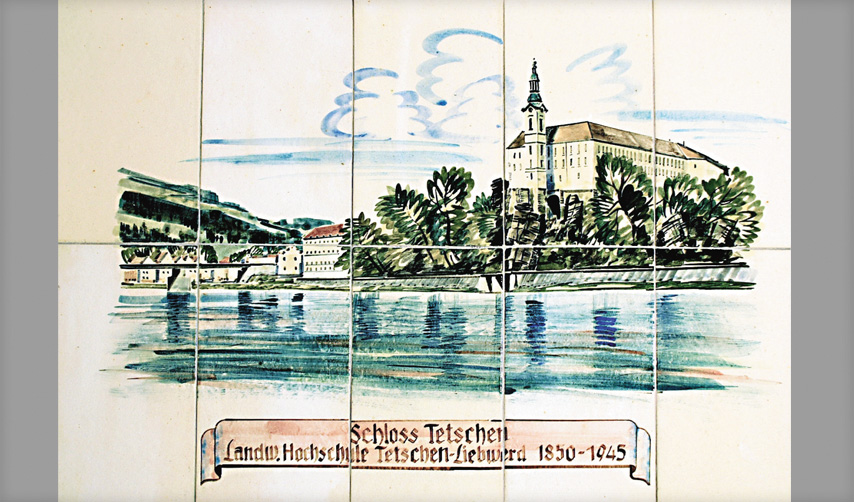 Schloss Tetschen
Landw. Hochschule Tetschen-Liebwerd 1850-1945